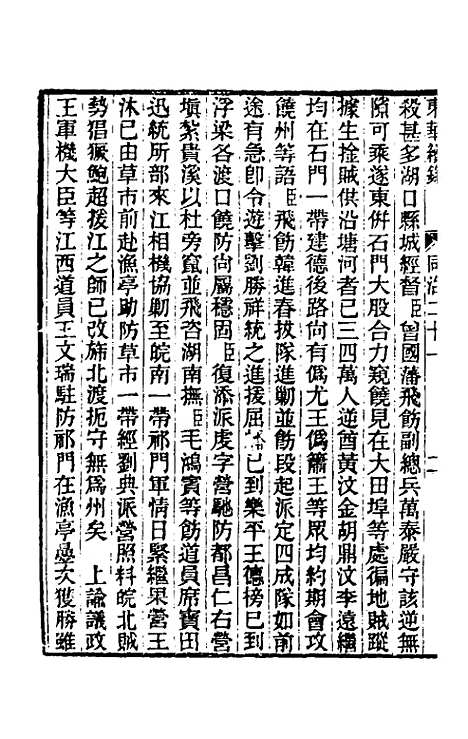 東華續錄 同治二十一
殺甚多湖口縣城經督臣曾國藩飛飭副總兵萬泰嚴守該逆無
隙可乘遂東併石門大股合力窺饒見在大田埠等處徧地賊蹤
據生擒賊供沿塘河者已三四萬人逆酋黃汶金胡鼎汶李遠繼
均在石門一帶建德後路尚有僞尤王僞蕭王等眾均約期會攻
饒州等語臣飛飭韓進春拔隊進勦並飭段起派定四成隊如前
途有急卽令遊擊劉勝祥統之進援屈蟠已到樂平王德榜已到
浮梁各渡口饒防尚屬穩固臣復添派虔字營馳防都昌仁右營
塡紮貴溪以杜旁竄並飛咨湖南撫臣毛鴻賓等飭道員席寶田
迅統所部來江相機協勦至皖南一帶祁門軍情日緊繼果營王
沐已由草市前赴漁亭助防草市一帶經劉典派營照料皖北賊
勢猖獗鮑超援江之師已改旆北渡扼守無爲州矣 上諭議政
王軍機大臣等江西道員王文瑞駐防祁門在漁亭疊次獲勝雖